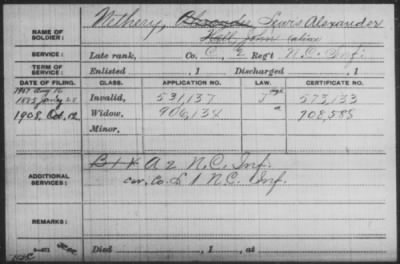 NAME OF SOLDIER: Nethery, Lewis Alexander
Hall, John (alias
SERVICE: Late rank, Co. C, 2 Reg't N.C. Inf.
TERM OF SERVICE: Enlisted , 1 Discharged , 1
DATE OF FILING. CLASS. APPLICATION NO. LAW. CERTIFICATE NO.
1885 July 28 Invalid, 531,137 573,133
1908, Oct. 12 Widow, 906,134 708,588
Minor,
ADDITIONAL SERVICES: A 2 N.C. Inf.
Co. D 1 N.C. Inf.
REMARKS:
Died , 1 , at